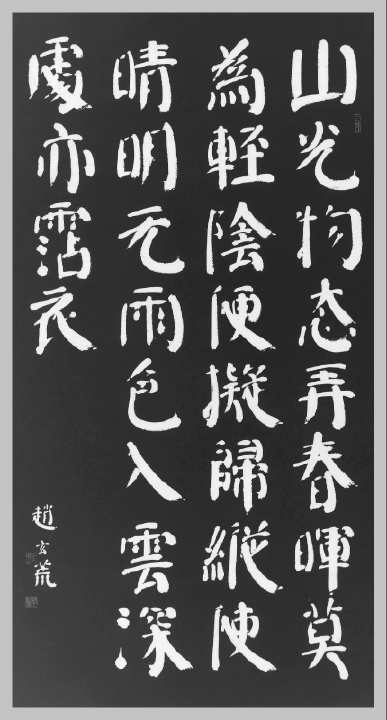 山光物态弄春暉莫
為輕陰便擬歸縱使
晴明无雨色入雲深
處亦霑衣
趙玄荒